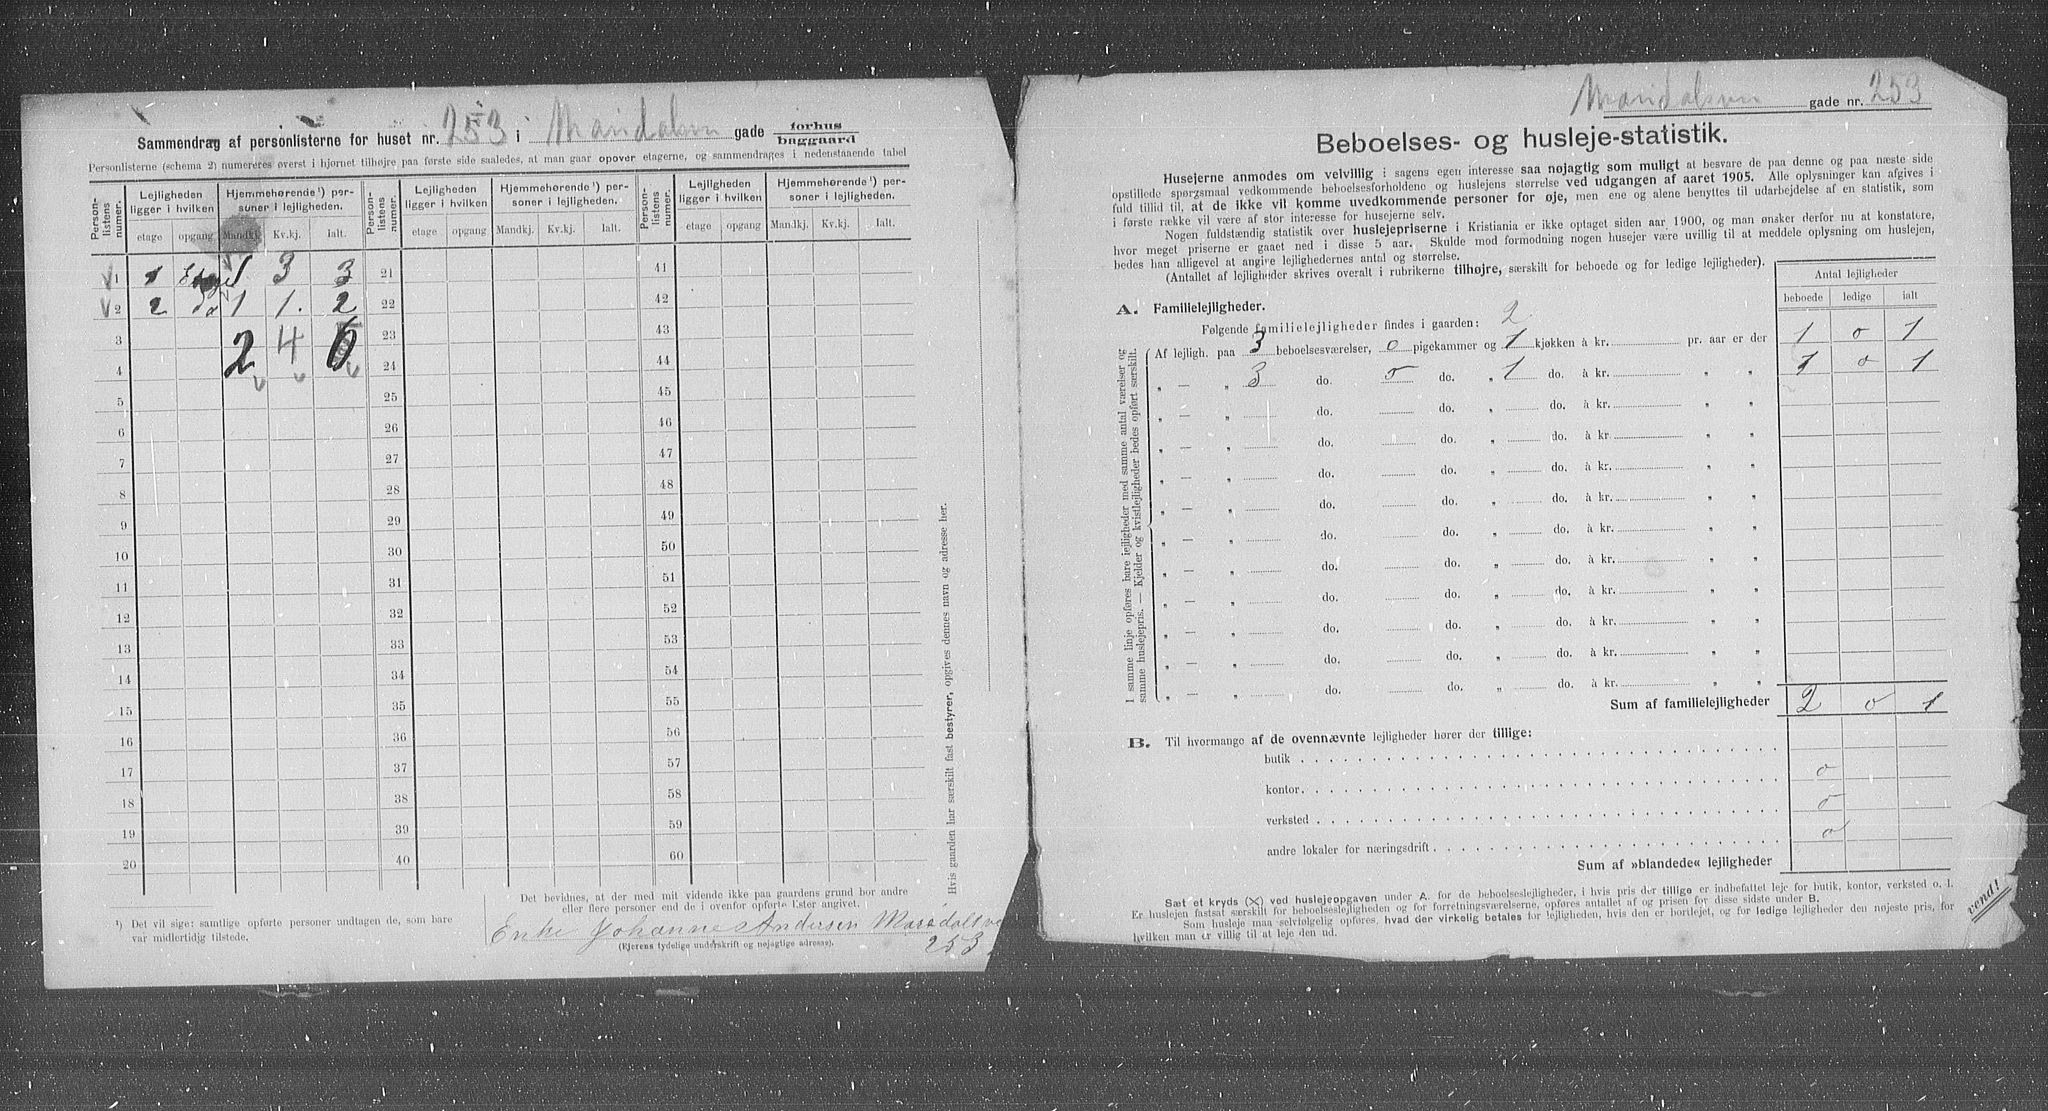 Sammendrag af personlisterne for huset nr. 253 i Maridalsvn gade forhus
baggaard
Personlisterne (schema 2) numereres øverst i hjørnet tilhøjre paa første side saaledes, at man gaar opover etagerne, og sammendrages i nedenstaaende tabel
Person-listens numer. Lejligheden ligger i hvilken Hjemmehørende¹) personer i lejligheden. Person-listens numer. Lejligheden ligger i hvilken Hjemmehørende¹) personer i lejligheden. Person-listens numer. Lejligheden ligger i hvilken Hjemmehørende¹) personer i lejligheden.
etage opgang Mandkj. Kv.kj. Ialt. etage opgang Mandkj. Kv.kj. Ialt. etage opgang Mandkj. Kv.kj. Ialt.
1 1 1 3 3 21 41
2 2 do 1 1. 2 22 42
3 2 4 6 23 43
4 24 44
5 25 45
6 26 46
7 27 47
8 28 48
9 29 49
10 30 50
11 31 51
12 32 52
13 33 53
14 34 54
15 35 55
16 36 56
17 37 57
18 38 58
19 39 59
20 40 60
¹) Det vil sige: samtlige opførte personer undtagen de, som bare
var midlertidig tilstede.
Det bevidnes, at der med mit vidende ikke paa gaardens grund bor andre
eller flere personer end de i ovenfor opførte lister angivet.
Enke Johanne Andersen Maridalsv
253
(Ejerens tydelige underskrift og nøjagtige adresse).
Hvis gaarden har særskilt fast bestyrer, opgives dennes navn og adresse her.
Maridalsvn gade nr. 253
Beboelses- og husleje-statistik.
Husejerne anmodes om velvillig i sagens egen interesse saa nøjagtig som muligt at besvare de paa denne og paa næste side
opstillede spørgsmaal vedkommende beboelsesforholdene og huslejens størrelse ved udgangen af aaret 1905. Alle oplysninger kan afgives i
fuld tillid til, at de ikke vil komme uvedkommende personer for øje, men ene og alene benyttes til udarbejdelse af en statistik, som
i første række vil være af stor interesse for husejerne selv.
Nogen fuldstændig statistik over huslejepriserne i Kristiania er ikke optaget siden aar 1900, og man ønsker derfor nu at konstatere,
hvor meget priserne er gaaet ned i disse 5 aar. Skulde mod formodning nogen husejer være uvillig til at meddele oplysning om huslejen,
bedes han alligevel at angive lejlighedernes antal og størrelse.
(Antallet af lejligheder skrives overalt i rubrikerne tilhøjre, særskilt for beboede og for ledige lejligheder).
Antal lejligheder
beboede ledige ialt
A. Familielejligheder.
Følgende familielejligheder findes i gaarden: 2
Af lejligh. paa 3 beboelsesværelser, 0 pigekammer og 1 kjøkken à kr. pr. aar er der 1 0 1
„ — „ 3 do. 0 do. „ 1 do. à kr. „ „ 1 0 1
„ — „ do. do. „ do. à kr. „ „
„ — „ do. do. „ do. à kr. „ „
„ — „ do. do. „ do. à kr. „ „
„ — „ do. do. „ do. à kr. „ „
„ — „ do. do. „ do. à kr. „ „
„ — „ do. do. „ do. à kr. „ „
„ — „ do. do. „ do. à kr. „ „
„ — „ do. do. „ do. à kr. „ „
„ — „ do. do. „ do. à kr. „ „
„ — „ do. do. „ do. à kr. „ „
I samme linje opføres bare lejligheder med samme antal værelser og
samme huslejepris. — Kjelder og kvistlejligheder bedes opført særskilt.
Sum af familielejligheder 2 0 1
B. Til hvormange af de ovennævnte lejligheder hører der tillige:
butik
kontor 0
verksted 0
andre lokaler for næringsdrift 0
Sum af »blandede« lejligheder
Sæt et kryds (X) ved huslejeopgaven under A. for de beboelseslejligheder, i hvis pris der tillige er indbefattet leje for butik, kontor, verksted o. l.
Er huslejen fastsat særskilt for beboelseslejligheden og for forretningsværelserne, opføres antallet af og prisen for disse sidste under B.
Som husleje maa selvfølgelig opføres, hvad der virkelig betales for lejligheden, hvis den er bortlejet, og for ledige lejligheder den nøjeste pris, for
hvilken man er villig til at leje den ud.
vend!